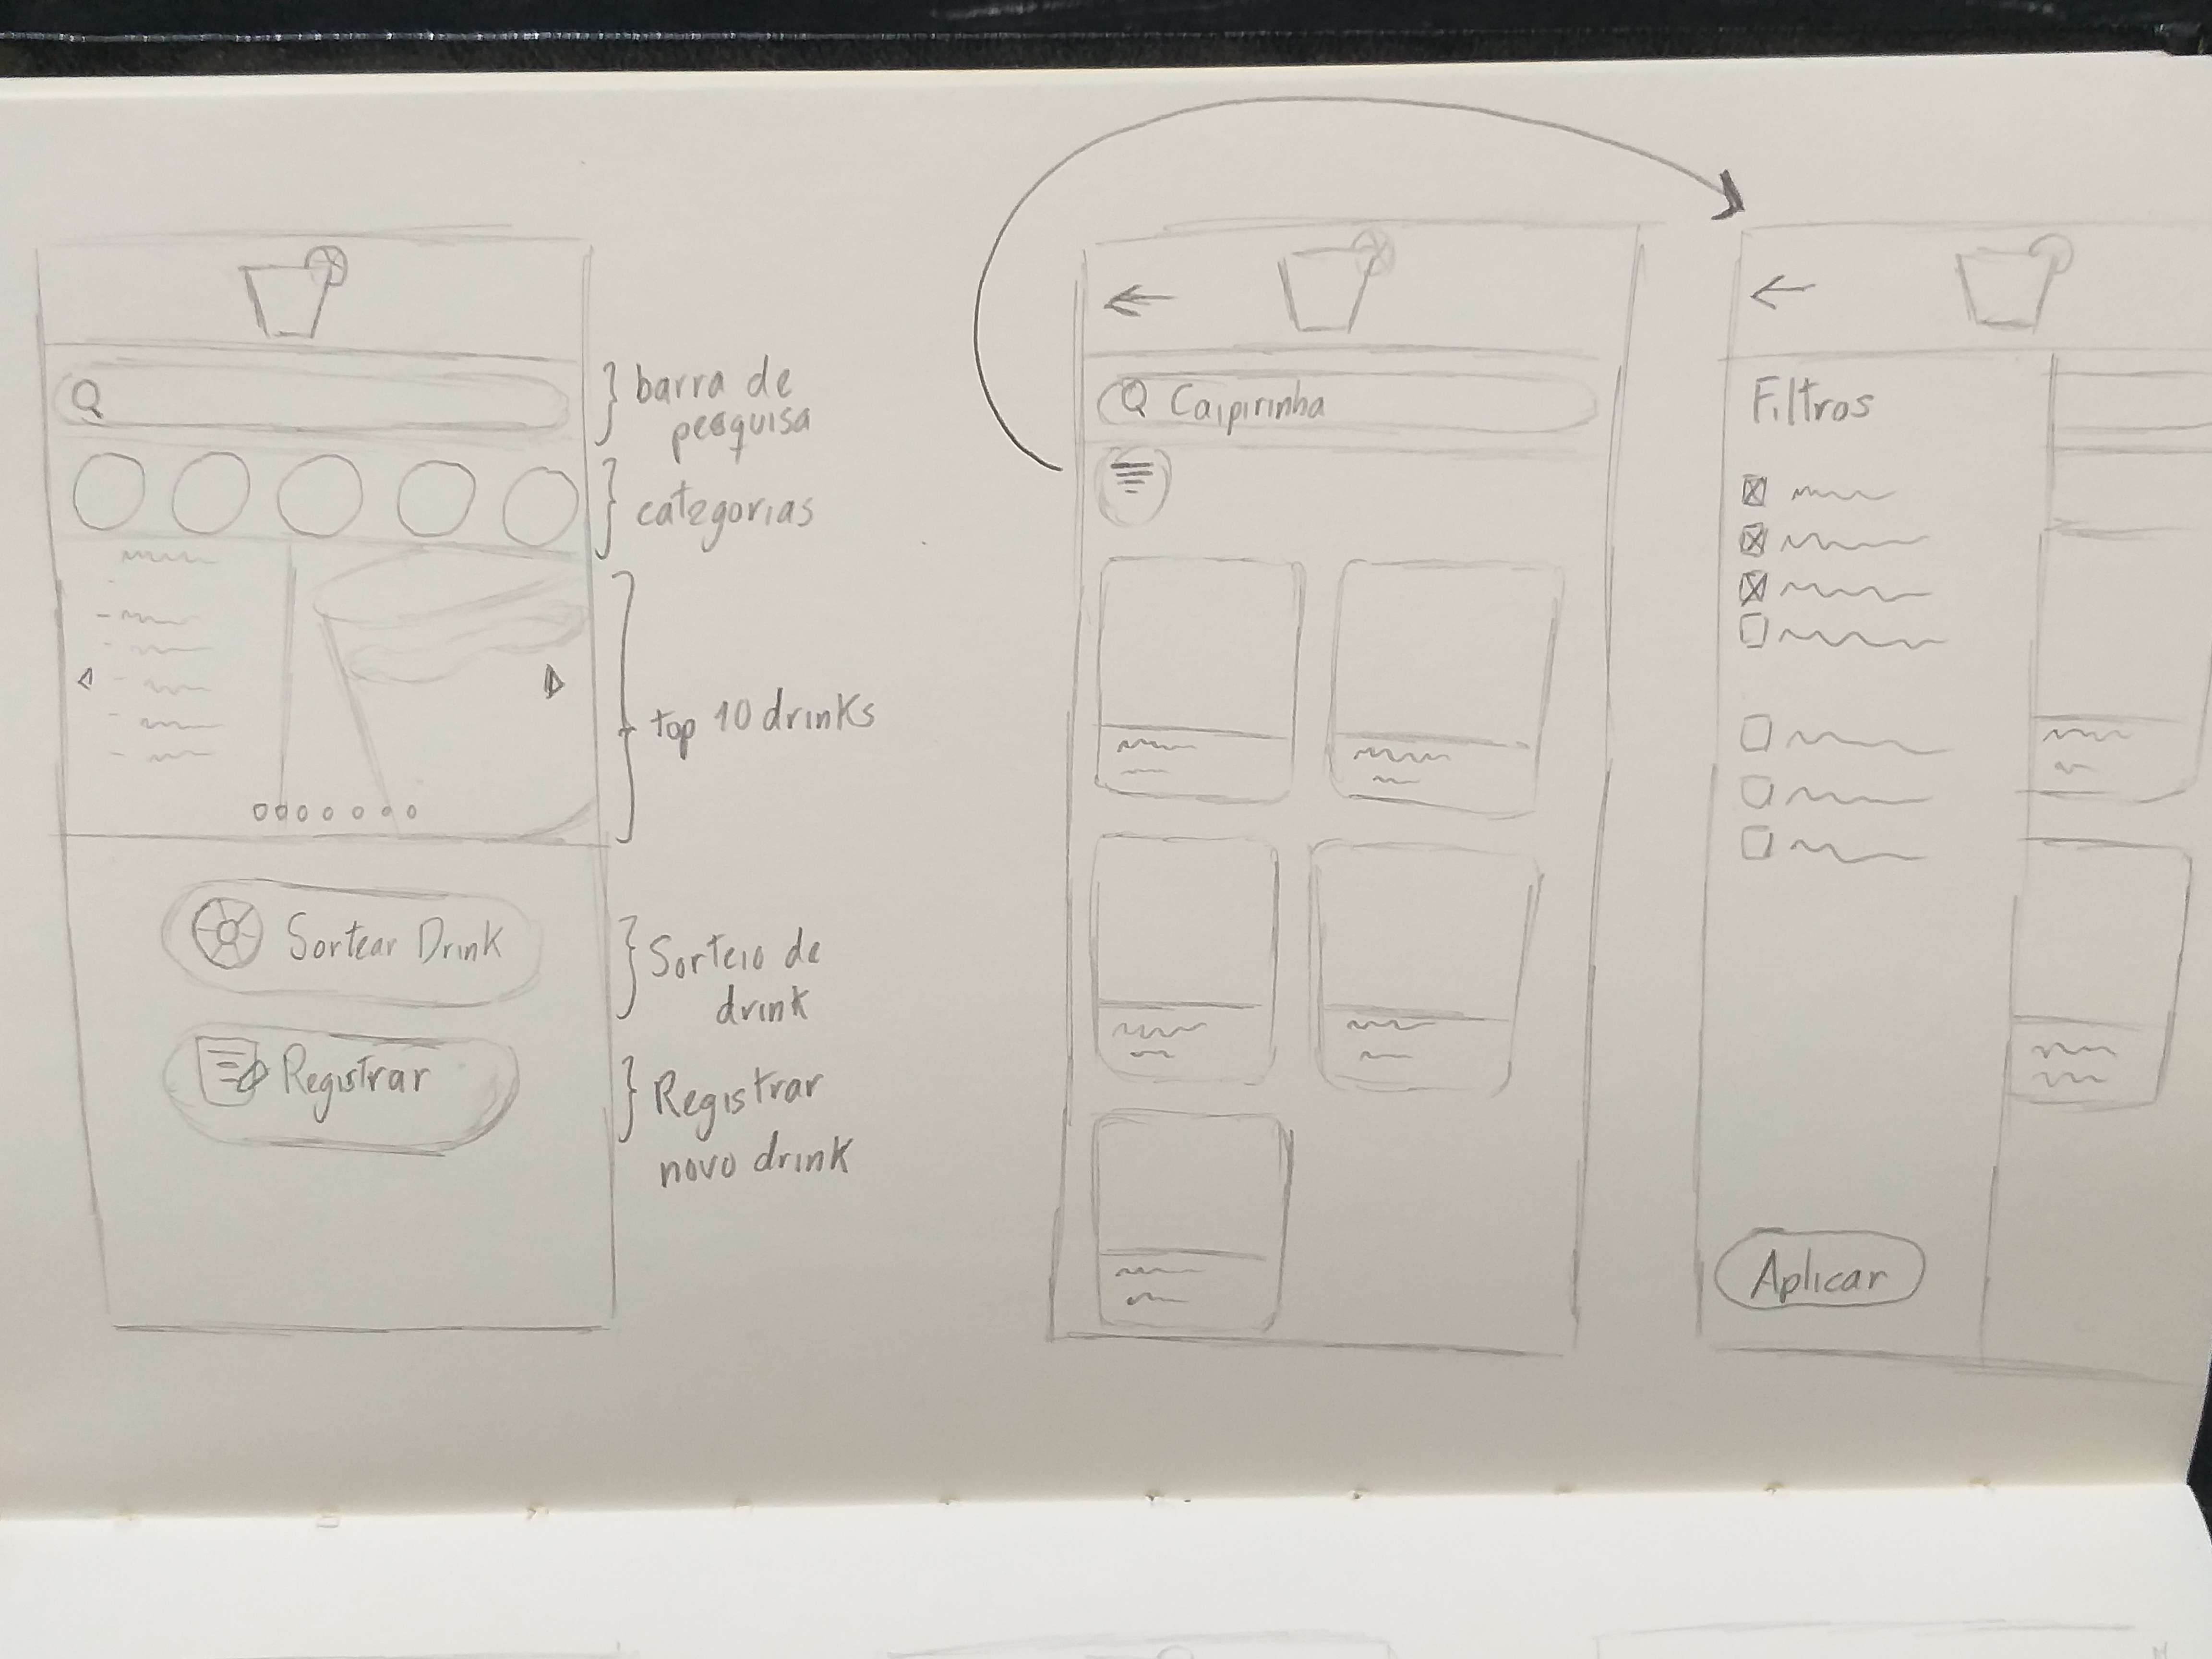 barra de
pesquisa
categorias
top 10 drinks
Sortear Drink
Sorteio de
drink
Registrar
Registrar
novo drink
Caipirinha
Filtros
Aplicar